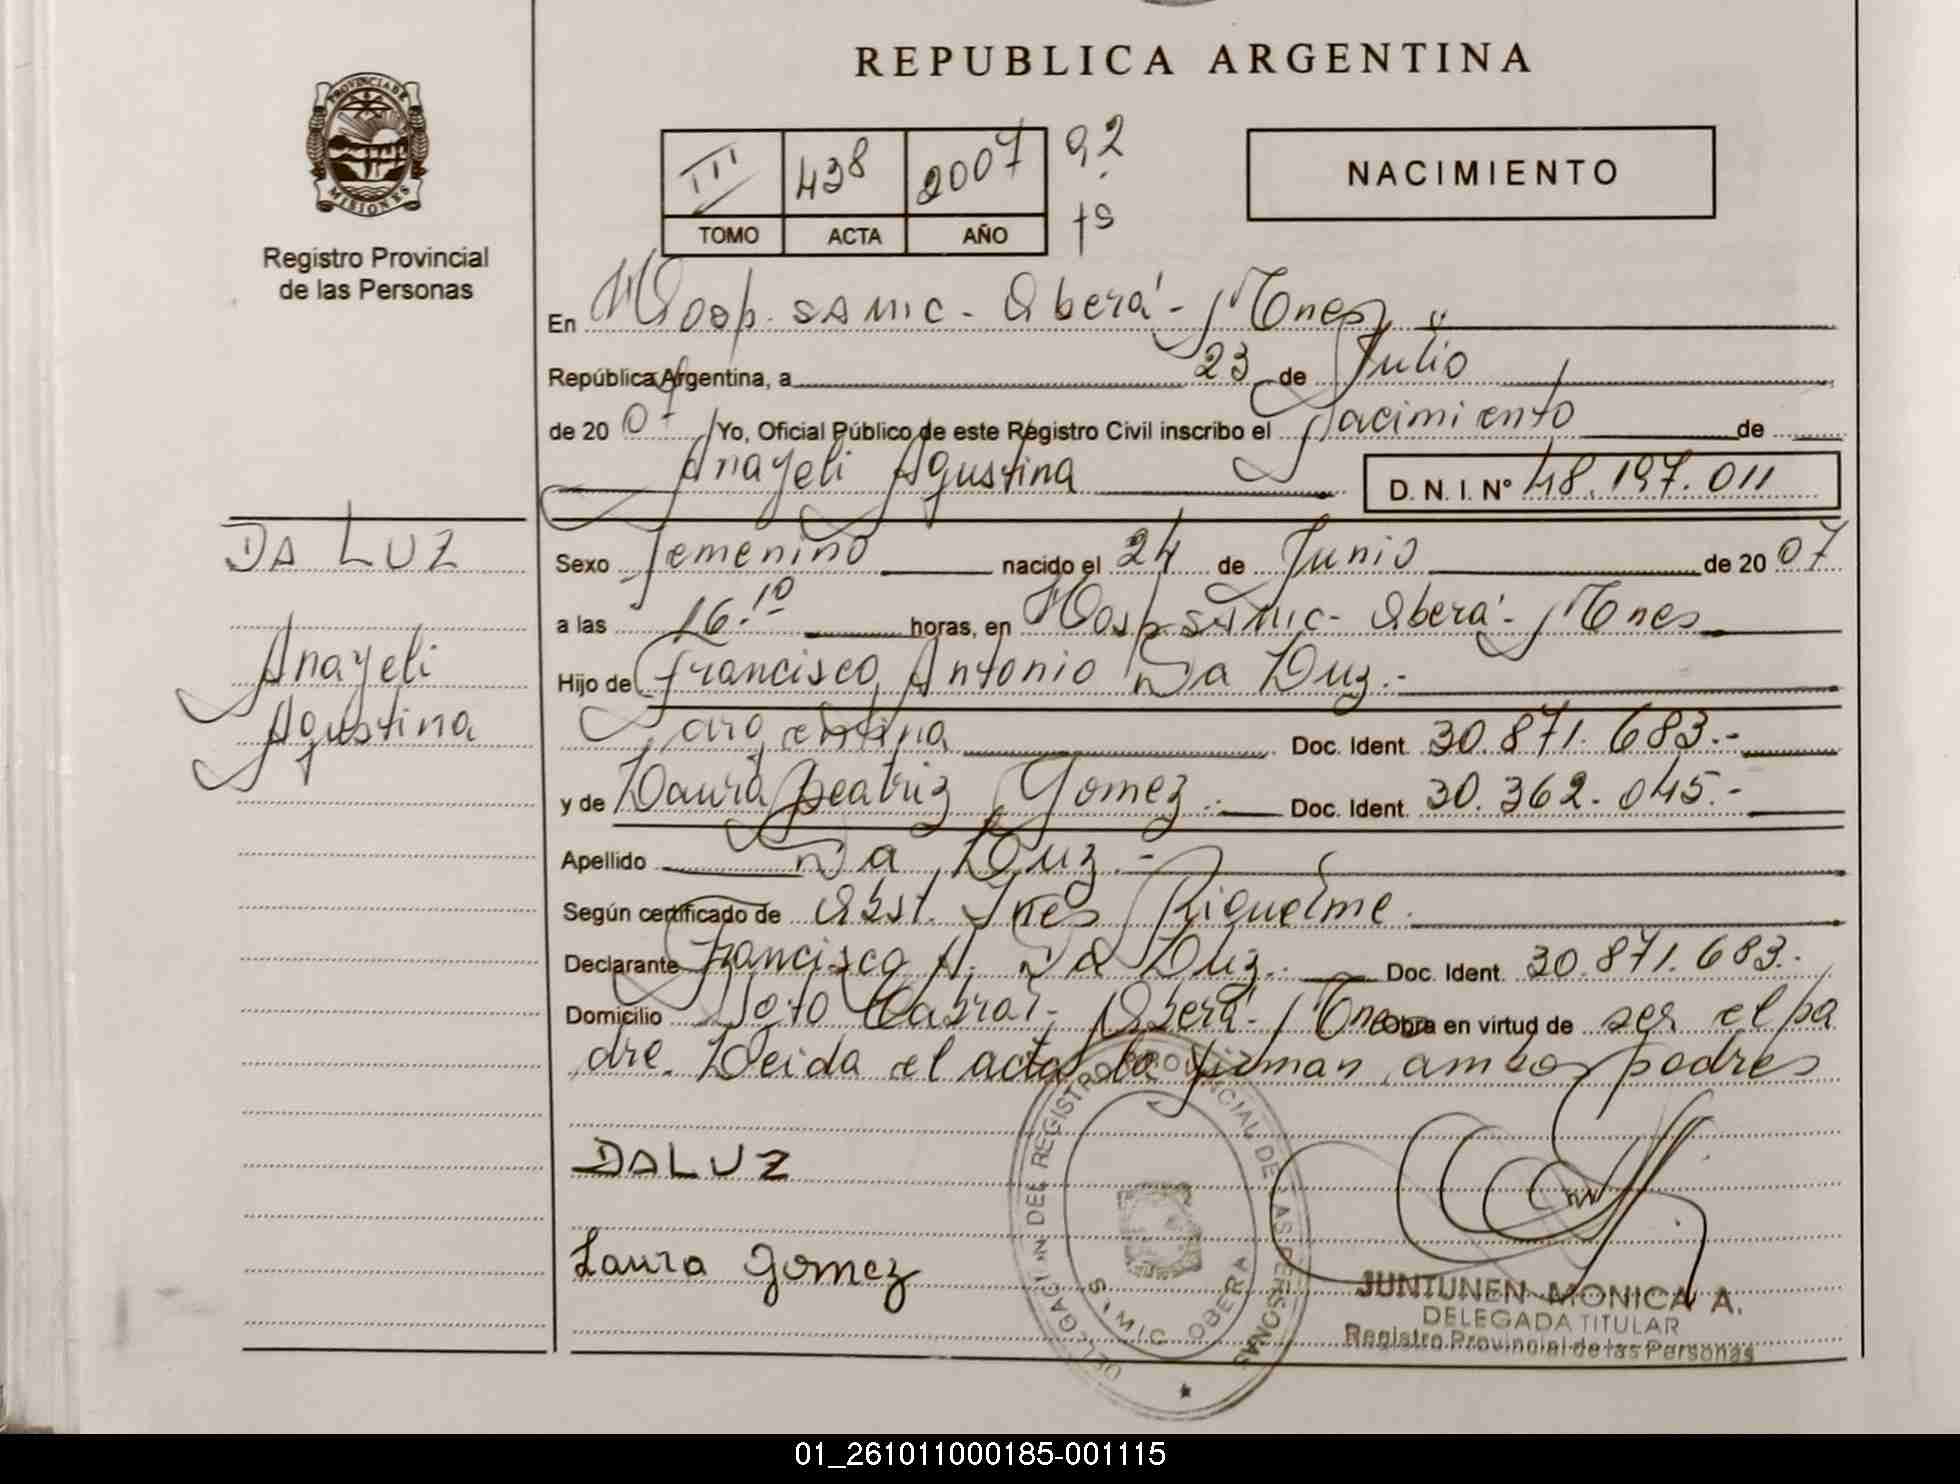 REPUBLICA ARGENTINA
PROVINCIA DE
MISIONES
Registro Provincial
de las Personas
III 438 2007
TOMO ACTA AÑO
NACIMIENTO
En Hosp. SAMIC - Oberá - Mnes
República Argentina, a 23 de Julio
de 2007 Yo, Oficial Público de este Registro Civil inscribo el Nacimiento de
Anayeli Agustina D. N. I. Nº 48.197.011
DA LUZ
Anayeli
Agustina
Sexo Femenino nacido el 24 de Junio de 2007
a las 16.10 horas, en Hosp SAMIC - Oberá - Mnes
Hijo de Francisco Antonio Da Luz.-
argentina Doc. Ident. 30.871.683.-
y de Laura Beatriz Gomez.- Doc. Ident. 30.362.045.-
Apellido Da Luz.-
Según certificado de Obst. Ines Riquelme.
Declarante Francisco A. Da Luz. Doc. Ident. 30.871.683.-
Domicilio Soto Cabral - Oberá - Mnes Obra en virtud de ser el pa
dre. Leida el acta la firman ambos padres
DA LUZ
Laura Gomez
DELEGACION DEL REGISTRO PROVINCIAL DE LAS PERSONAS
SAMIC OBERA
JUNTUNEN MONICA A.
DELEGADA TITULAR
Registro Provincial de las Personas
01_261011000185-001115